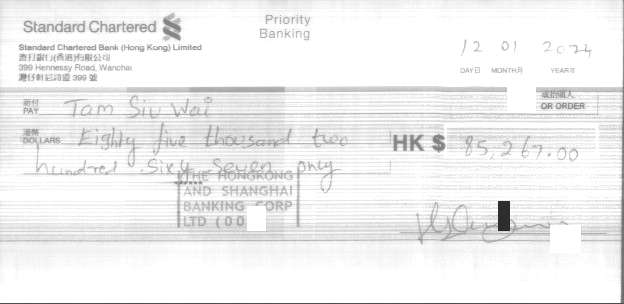 Standard Chartered
Priority
Banking
Standard Chartered Bank (Hong Kong) Limited
渣打銀行(香港)有限公司
399 Hennessy Road, Wanchai
灣仔軒尼詩道 399 號
12 01 2024
DAY日 MONTH月 YEAR年
祈付
PAY Tam Siu Wai
或持票人
OR ORDER
港幣
DOLLARS Eighty five thousand two
hundred sixty seven only
HK $ 85,267.00
THE HONGKONG
AND SHANGHAI
BANKING CORP
LTD (00